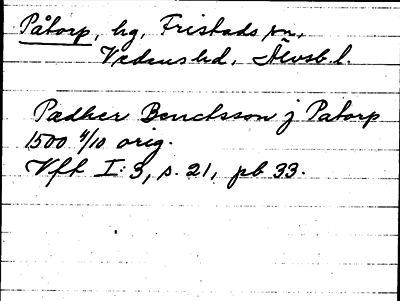 Påtorp, hg, Fristads sn,
Vedens hd, Älvsb. l.
Pædher Benctsson j Patorp
1500 4/10 orig.
Vft I:3, s. 21, pb 33.